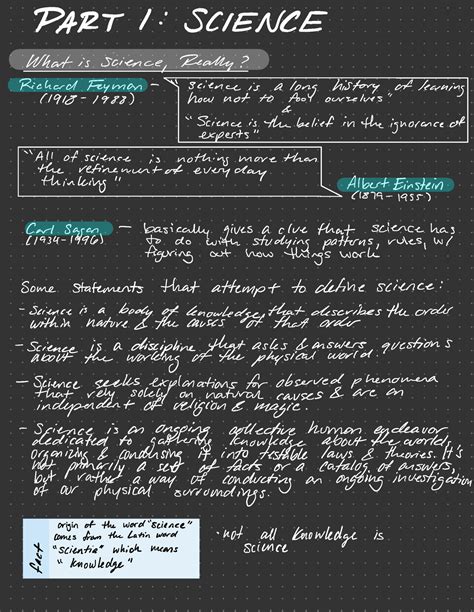 PART 1: SCIENCE
What is Science, Really?
Richard Feyman - "science is a long history of learning
(1918-1988) how not to fool ourselves"
&
"Science is the belief in the ignorance of
experts"
"All of science is nothing more than
the refinement of everyday
thinking"
Albert Einstein
(1879-1955)
Carl Sagan - basically gives a clue that science has
(1934-1996) to do with studying patterns, rules, w/
figuring out how things work
Some statements that attempt to define science:
- Science is a body of knowledge that describes the order
within nature & the causes of that order
- Science is a discipline that asks & answers questions
about the working of the physical world.
- Science seeks explanations for observed phenomena
that rely solely on natural causes & are an
independent of religion & magic.
- Science is an ongoing collective human endeavor
dedicated to gathering knowledge about the world,
organizing & condensing it into testable laws & theories. It's
not primarily a set of facts or a catalog of answers,
but rather a way of conducting an ongoing investigation
of our physical surroundings.
fact
origin of the word "science"
comes from the Latin word
"scientia" which means
"knowledge"
· not all knowledge is
science